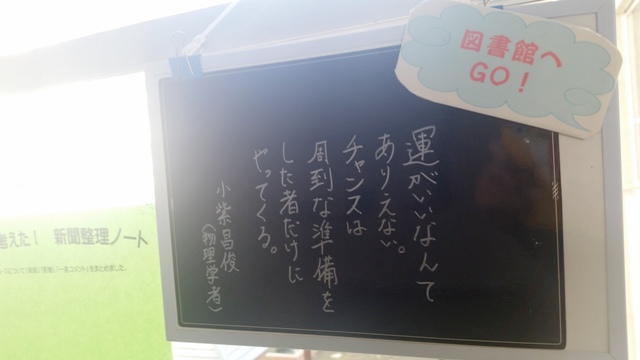 図書館へ
GO!
運がいいなんて
ありえない。
チャンスは
周到な準備を
した者だけに
やってくる。
小柴昌俊
(物理学者)
考えた! 新聞整理ノート